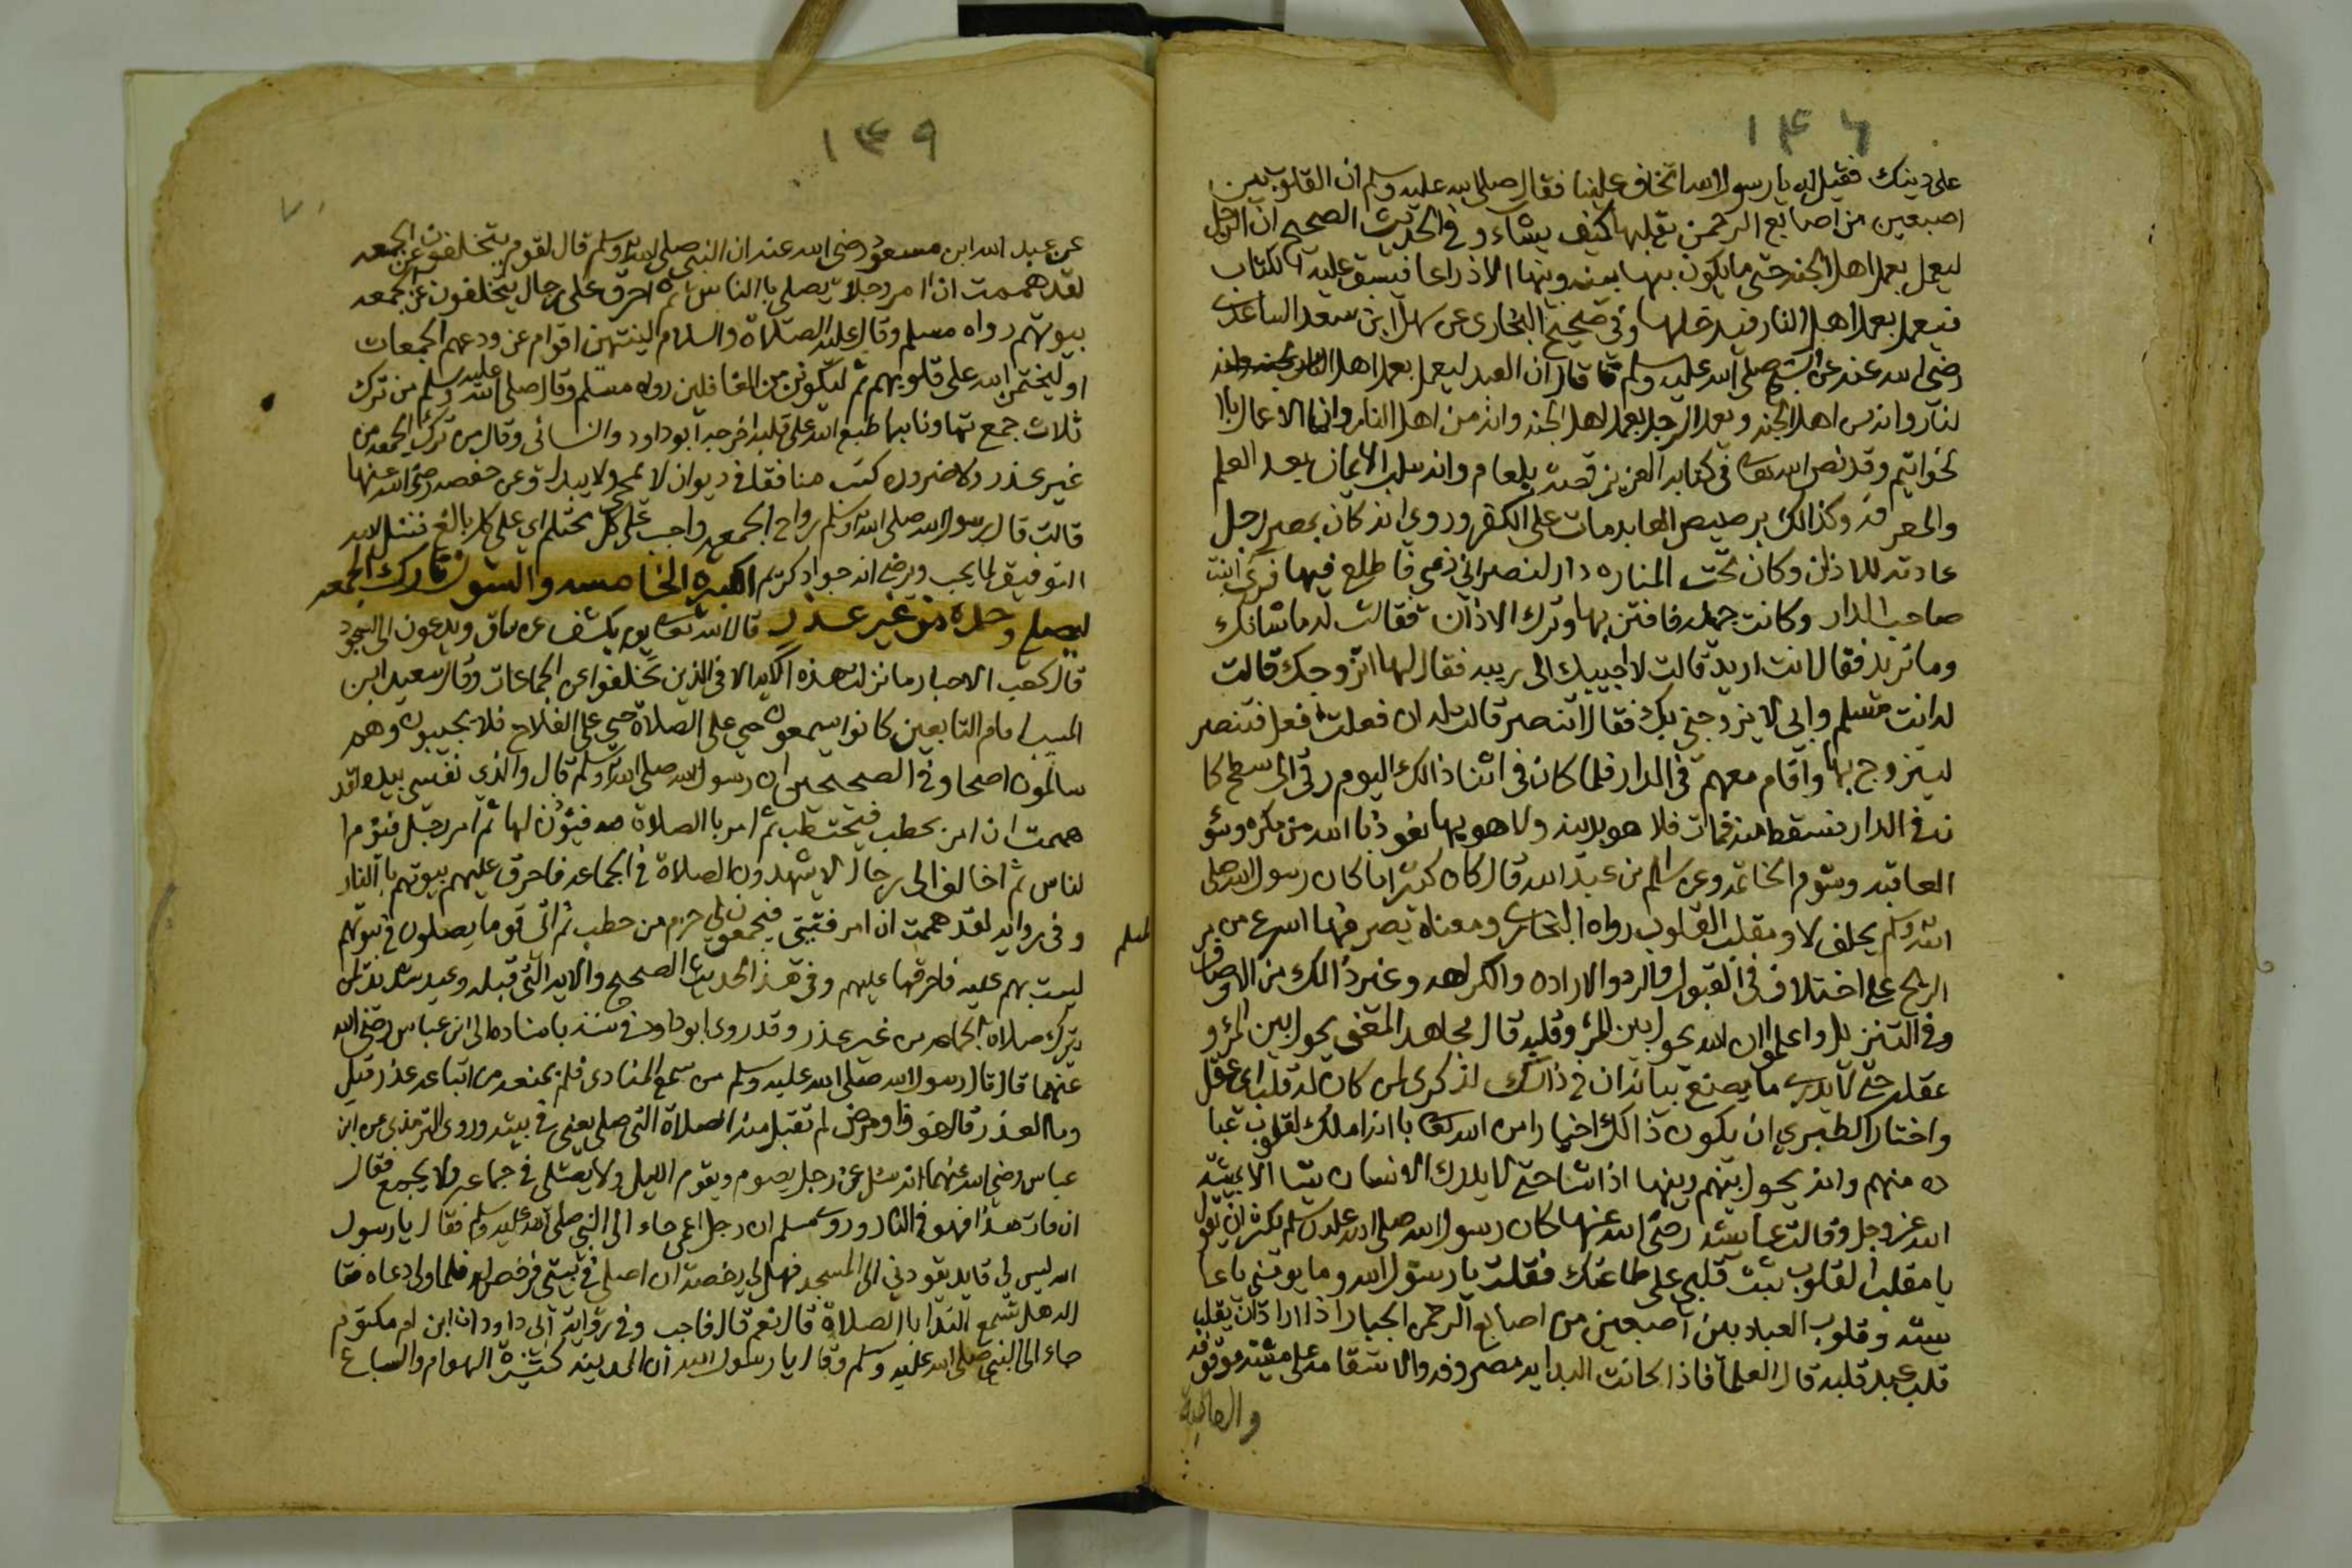 ١٣٦
على دينك فقيل له يا رسول الله اتخاف علينا فقال صلى الله عليه وسلم ان القلوب بين
اصبعين من اصابع الرحمن يقلبها كيف يشاء وفي الحديث الصحيح ان الرجل
ليعمل بعمل اهل الجنه حتى ما يكون بينه وبينها الا ذراعا فيسبق عليه الكتاب
فيعمل بعمل اهل النار فيدخلها وفي صحيح البخاري عن سهل ابن سعد الساعدي
رضي الله عنه عن النبي صلى الله عليه وسلم قال ان العبد ليعمل بعمل اهل
لنار وانه من اهل الجنه ويعمل الرجل بعمل اهل الجنه وانه من اهل النار وانما الاعمال با
لخواتيم وقد نص الله تعالى في كتابه العزيز قصة بلعام وانه سلب الايمان بعد العلم
والمعرفه وكذالك برصيص العابد مات على الكفر وروي انه كان بمصر رجل
عادته للاذان وكان تحت المناره دار لنصراني ذمي فاطلع فيها فرى ابنت
صاحب الدار وكانت جميله فافتتن بها وترك الاذان فقالت له ما شانك
وما تريد فقال انت اريد قالت لا اجيبك الى ريبه فقال لها اتزوجك قالت
له انت مسلم وابي لا يزوجني بك فقال اتنصر قالت له ان فعلت افعل فتنصر
ليتزوج بها واقام معهم في الدار فلما كان في اثناء ذالك اليوم رقى الى سطح كا
نه في الدار فسقط منه فمات فلا هو بدينه ولا هو بها نعوذ با الله من مكره وسؤ
العاقبه وسؤ الخاتمه وعن سالم عن عبد الله قال كان كثيرا ما كان رسول الله صلى
الله وسلم يحلف لا ومقلب القلوب رواه البخاري ومعناه يصرفها اسرع من مر
الريح على اختلاف في القبول والرد والاراده والكراهه وغير ذالك من الاوصاف
وفي التنزيل واعلموا ان الله يحول بين المرء وقلبه قال مجاهد المعنى يحول بين المرء و
عقله حتى لا يدري ما يصنع بيانه ان في ذالك لذكرى لمن كان له قلب اي عقل
واختار الطبري ان يكون ذالك اخبارا من الله تعالى با انه املك لقلوب عبا
ده منهم وانه يحول بينهم وبينها اذا شا حتى لا يدرك الانسان شيا الا بمشيه
الله عز وجل وقالت عايشه رضي الله عنها كان رسول الله صلى الله عليه وسلم يكثر ان يقول
يا مقلب القلوب ثبت قلبي على طاعتك فقلت يا رسول الله وما يومنني يا عا
يشه وقلوب العباد بين اصبعين من اصابع الرحمن الجبار اذا اراد ان يقلب
قلب عبد قلبه قال العلما فاذا كانت الهدايه مصروفه والاستقامه على مشيته موقوفه
والعاقبة
١٣٩
٧٠
عن عبد الله ابن مسعود رضي الله عنه ان النبي صلى الله وسلم قال لقوم يتخلفون عن الجمعه
لقد هممت ان امر رجلا يصلي با الناس ثم احرق على رجال يتخلفون عن الجمعه
بيوتهم رواه مسلم وقال عليه الصلاة والسلام لينتهين اقوام عن ودعهم الجمعات
او ليختمن الله على قلوبهم ثم ليكونن من الغافلين رواه مسلم وقال صلى الله عليه وسلم من ترك
ثلاث جمع تهاونا بها طبع الله على قلبه اخرجه ابو داود والنسائي وقال من ترك الجمعه من
غير عذر ولا ضروره كتب منافقا في ديوان لا يمحى ولا يبدل وعن حفصه رضي الله عنها
قالت قال رسول الله صلى الله وسلم رواح الجمعه واجب على كل محتلم اي على كل بالغ فنسئل الله
التوفيق لما يحب ويرضى انه جواد كريم الكبيره الخامسه والستون تارك الجمعه
ليصلي وحده من غير عذر قال الله تعالى يوم يكشف عن ساق ويدعون الى السجود
قال كعب الاحبار ما نزلت هذه الآيه الا في الذين تخلفوا عن الجماعات وقال سعيد ابن
المسيب امام التابعين كانوا يسمعون حي على الصلاة حي على الفلاح فلا يجيبون وهم
سالمون اصحا وفي الصحيحين ان رسول الله صلى الله وسلم قال والذي نفسي بيده لقد
هممت ان امر بحطب فيحتطب ثم امر با الصلاة فيؤذن لها ثم امر رجل فيؤم ا
لناس ثم اخالف الى رجال لا يشهدون الصلاة في الجماعه فاحرق عليهم بيوتهم با النار
وفي روايه لمسلم لقد هممت ان امر فتيتي فيجمعون لي حزم من حطب ثم اتى قوما يصلون في بيوتهم
ليست بهم عليه فاحرقها عليهم وفي هذا الحديث الصحيح والايه التي قبله وعيد شديد لمن
يترك صلاة الجماعه من غير عذر وقد روى ابو داود في سننه باسناده الى ابن عباس رضي الله
عنهما قال قال رسول الله صلى الله عليه وسلم من سمع المنادى فلم يمنعه من اتباعه عذر قيل
وما العذر قال خوفا او مرض لم تقبل منه الصلاة التي صلى يعني في بيته وروى الترمذي عن ابن
عباس رضي الله عنهما انه سئل عن رجل يصوم ويقوم الليل ولا يصلي في جماعه ولا يجمع فقال
ان مات هذا فهو في النار وروى مسلم ان رجل اعمى جاء الى النبي صلى الله عليه وسلم فقال يا رسول
الله ليس لي قايد يقودني الى المسجد فهل لي رخصة ان اصلي في بيتي فرخص له فلما ولى دعاه فقا
ل له هل تسمع الندا با الصلاة قال نعم قال فاجب وفي رواية ابي داود ان ابن ام مكتوم
جاء الى النبي صلى الله عليه وسلم وقال يا رسول الله ان المدينه كثيرة الهوام والسباع